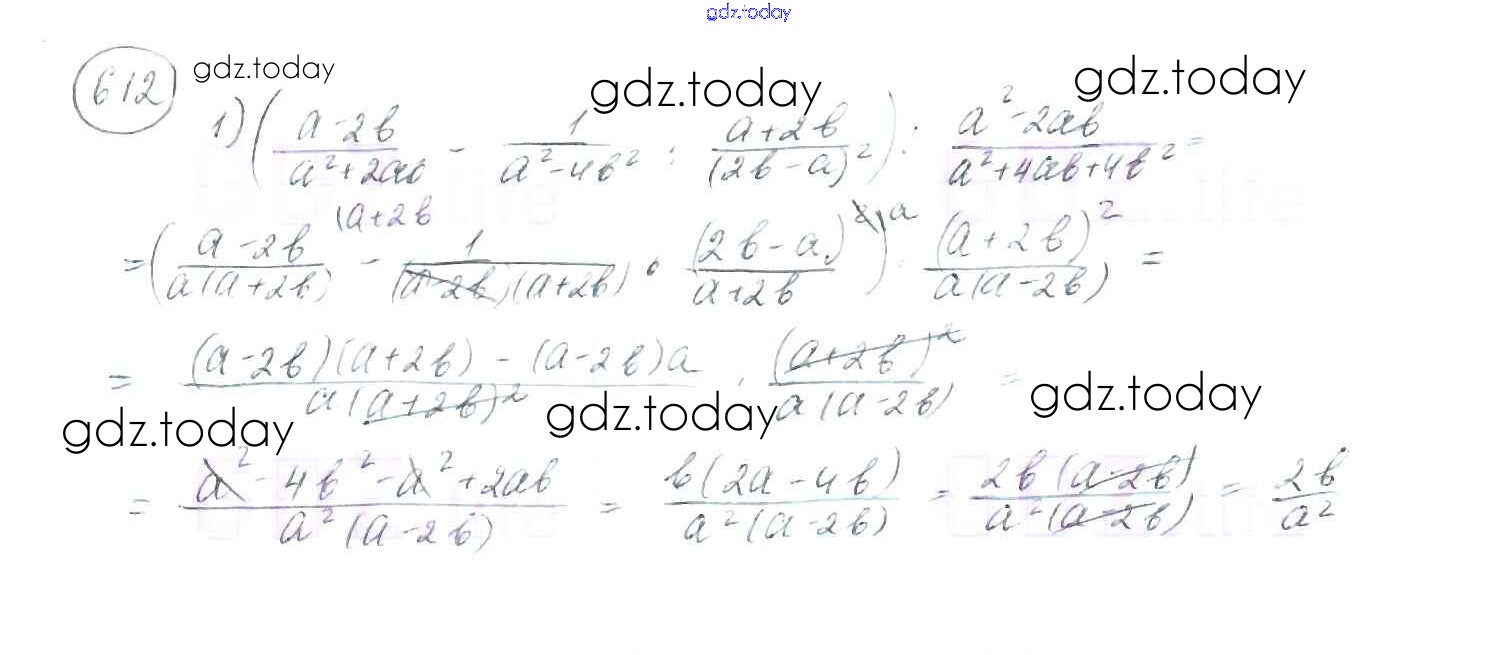 gdz.today
612 gdz.today gdz.today gdz.today
1) ( (a-2b)/(a²+2ab) - 1/(a²-4b²) : (a+2b)/(2b-a)² ) : (a²-2ab)/(a²+4ab+4b²) =
= ( (a-2b)/(a(a+2b)) (a+2b - 1/((a-2b)(a+2b)) · (2b-a)²/(a+2b) \a ) : (a+2b)²/(a(a-2b)) =
= ((a-2b)(a+2b) - (a-2b)a)/(a(a+2b)²) · (a+2b)²/(a(a-2b)) =
gdz.today gdz.today gdz.today
= (a²-4b²-a²+2ab)/(a²(a-2b)) = b(2a-4b)/(a²(a-2b)) = 2b(a-2b)/(a²(a-2b)) = 2b/a²